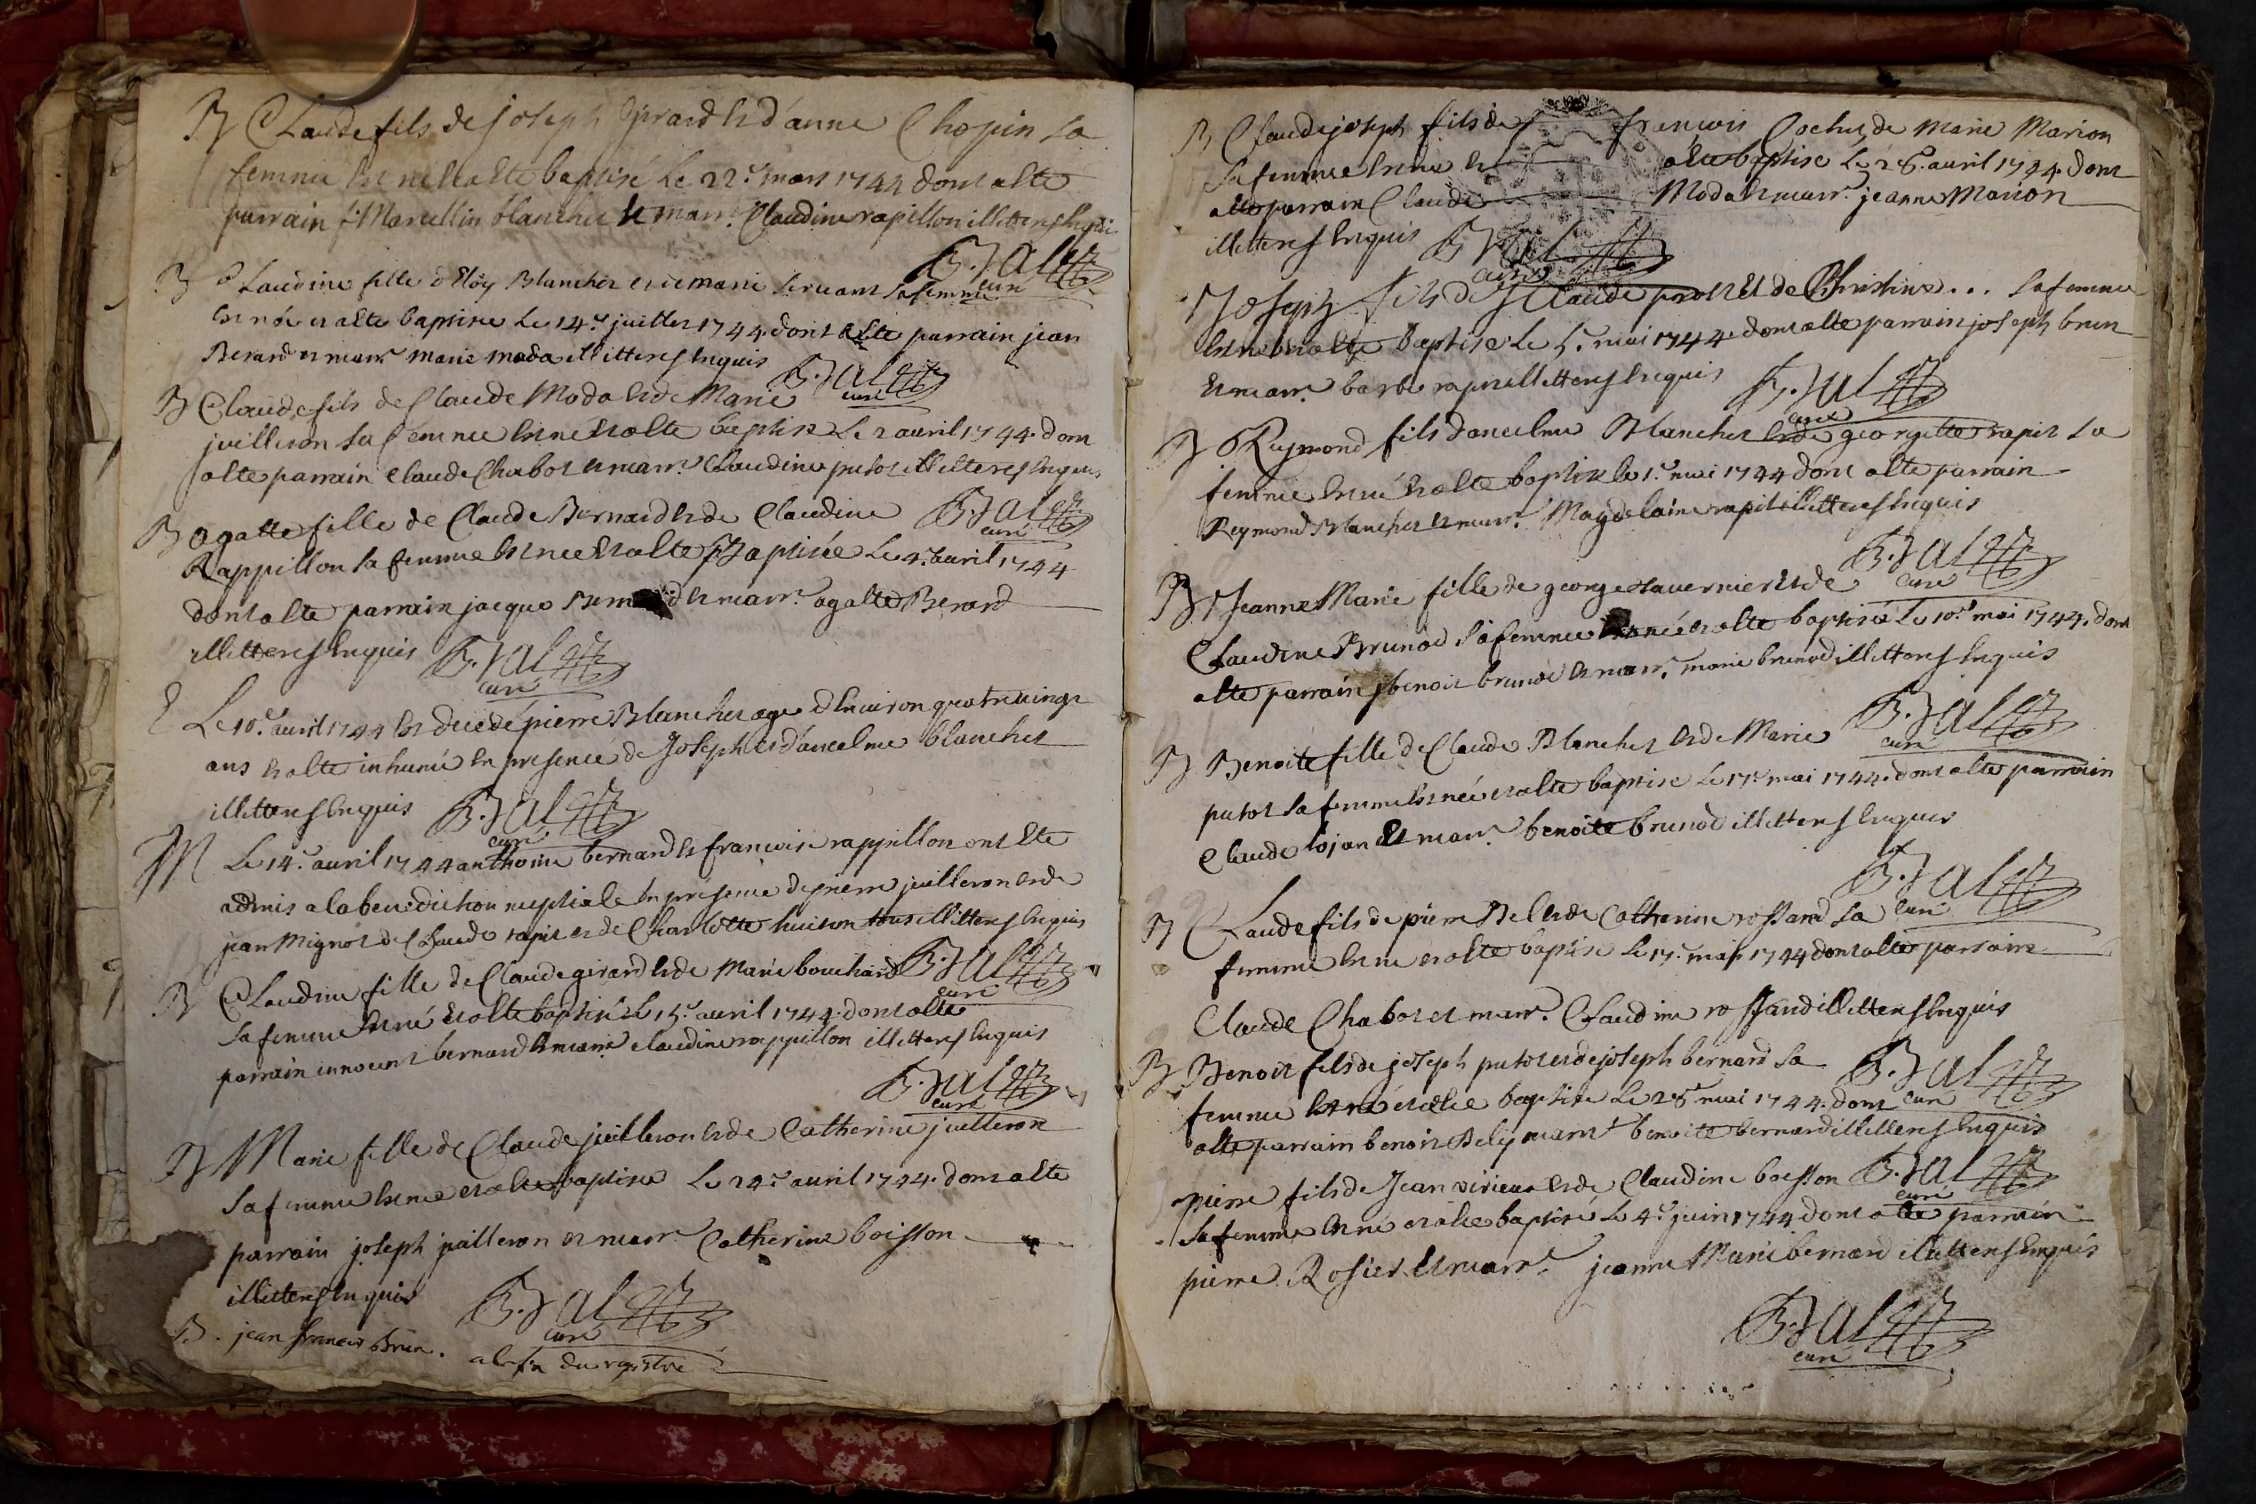 B Claude fils de joseph girard et d'anne Chopin sa
femme est né et a esté baptisé Le 22.e mars 1744 dont a esté
parrain f. Marcellin blanchet et marr. Claudine rapillon illitterés Enquis
B. Jal curé
B Claudine fille d'Eloy Blanchet et de marie servant sa femme
est née et a esté baptisée Le 14.e juillet 1744. dont a Esté parrain jean
Berard et marr.e marie moda illitterés Enquis B. Jal curé
B Claude fils de Claude Moda et de Marie
juilleron sa femme est né Et a esté baptisé Le 2 avril 1744. dont
a esté parrain claude Chabot et marr.e Claudine putot illitterés Enquis
B. Jal curé
B agatte fille de Claude Bernard et de Claudine
Rappillon sa femme est née Et a esté Baptisée Le 4.e avril 1744
dont a esté parrain jacque et marr.e agatte Berard
illitterés Enquis B. Jal curé
E Le 10.e avril 1744 est decedé pierre Blanchet agé d'Environ quatrevingt
ans Et a esté inhumé En presence de Joseph et d'ancelme blanchet
illitterés Enquis B. Jal curé
M Le 14.e avril 1744 anthoine bernard et francoise rappillon ont Eté
admis a la benediction nuptiale En présence de pierre juilleron et de
jean Mignot de Claude rapit et de Charlotte huiton tous illitterés Enquis
B Claudine fille de Claude girard et de Marie bouchard B. Jal curé
sa femme est né Et a esté baptisé Le 15.e avril 1744. dont a esté
parrain innocent bernard et marr.e claudine rappillon illitterés Enquis
B. Jal curé
B Marie fille de Claude juilleron et de Catherine juilleron
sa femme est née et a esté baptisée Le 24.e avril 1744. dont a esté
parrain joseph juilleron et marr.e Catherine boisson
illitterés Enquis B. Jal curé
B. jean francois Brun. a la fin du registre
B Claude joseph fils de françois Cochet, de marie Marion
sa femme est né et a esté baptisé Le 26. avril 1744. dont
a esté parrain Claude Moda et marr.e jeanne Marion
illitterés Enquis B. Jal curé
Joseph fils de Claude prost Et de Christine... sa femme
est né Et a esté baptisé Le 5.e mai 1744. dont a esté parrain joseph brun
et marr.e barbe rapit illitterés Enquis B. Jal curé
B Reymond fils d'ancelme Blanchet et de georgette rapit sa
femme est né Et a esté baptisé le 1.e mai 1744 dont a esté parrain
Reymond Blanchet et marr.e Magdelaine rapit illitterés Enquis
B. Jal curé
B Jeanne Marie fille de george tavernier Et de
Claudine Brunod sa femme est née et a esté baptisée Le 10.e mai 1744. dont
a esté parrain benoit brunod et marr.e marie brunod illitterés Enquis
B. Jal curé
B Benoite fille de Claude Blanchet et de Marie
putot sa femme est née et a esté baptisé Le 17.e mai 1744. dont a esté parrain
Claude lojan Et marr.e benoite brunod illitterés Enquis
B. Jal curé
B Claude fils de pierre Bel et de Catherine rossand sa
femme est né et a esté baptisé Le 17.e mai 1744 dont a esté parrain
Claude Chabot et marr.e Claudine rossand illitterés Enquis
B Benoit fils de joseph putot et de joseph bernard sa B. Jal curé
femme est né et a esté baptisé Le 28 mai 1744. dont
a esté parrain benoit Bel et marr.e benoite bernard illitterés Enquis
pierre fils de Jean virieux et de Claudine boisson B. Jal curé
sa femme est né et a esté baptisé Le 4.e juin 1744 dont a esté parrain
pierre Rosiet Et marr.e jeanne Marie bernard illitterés Enquis
B. Jal curé